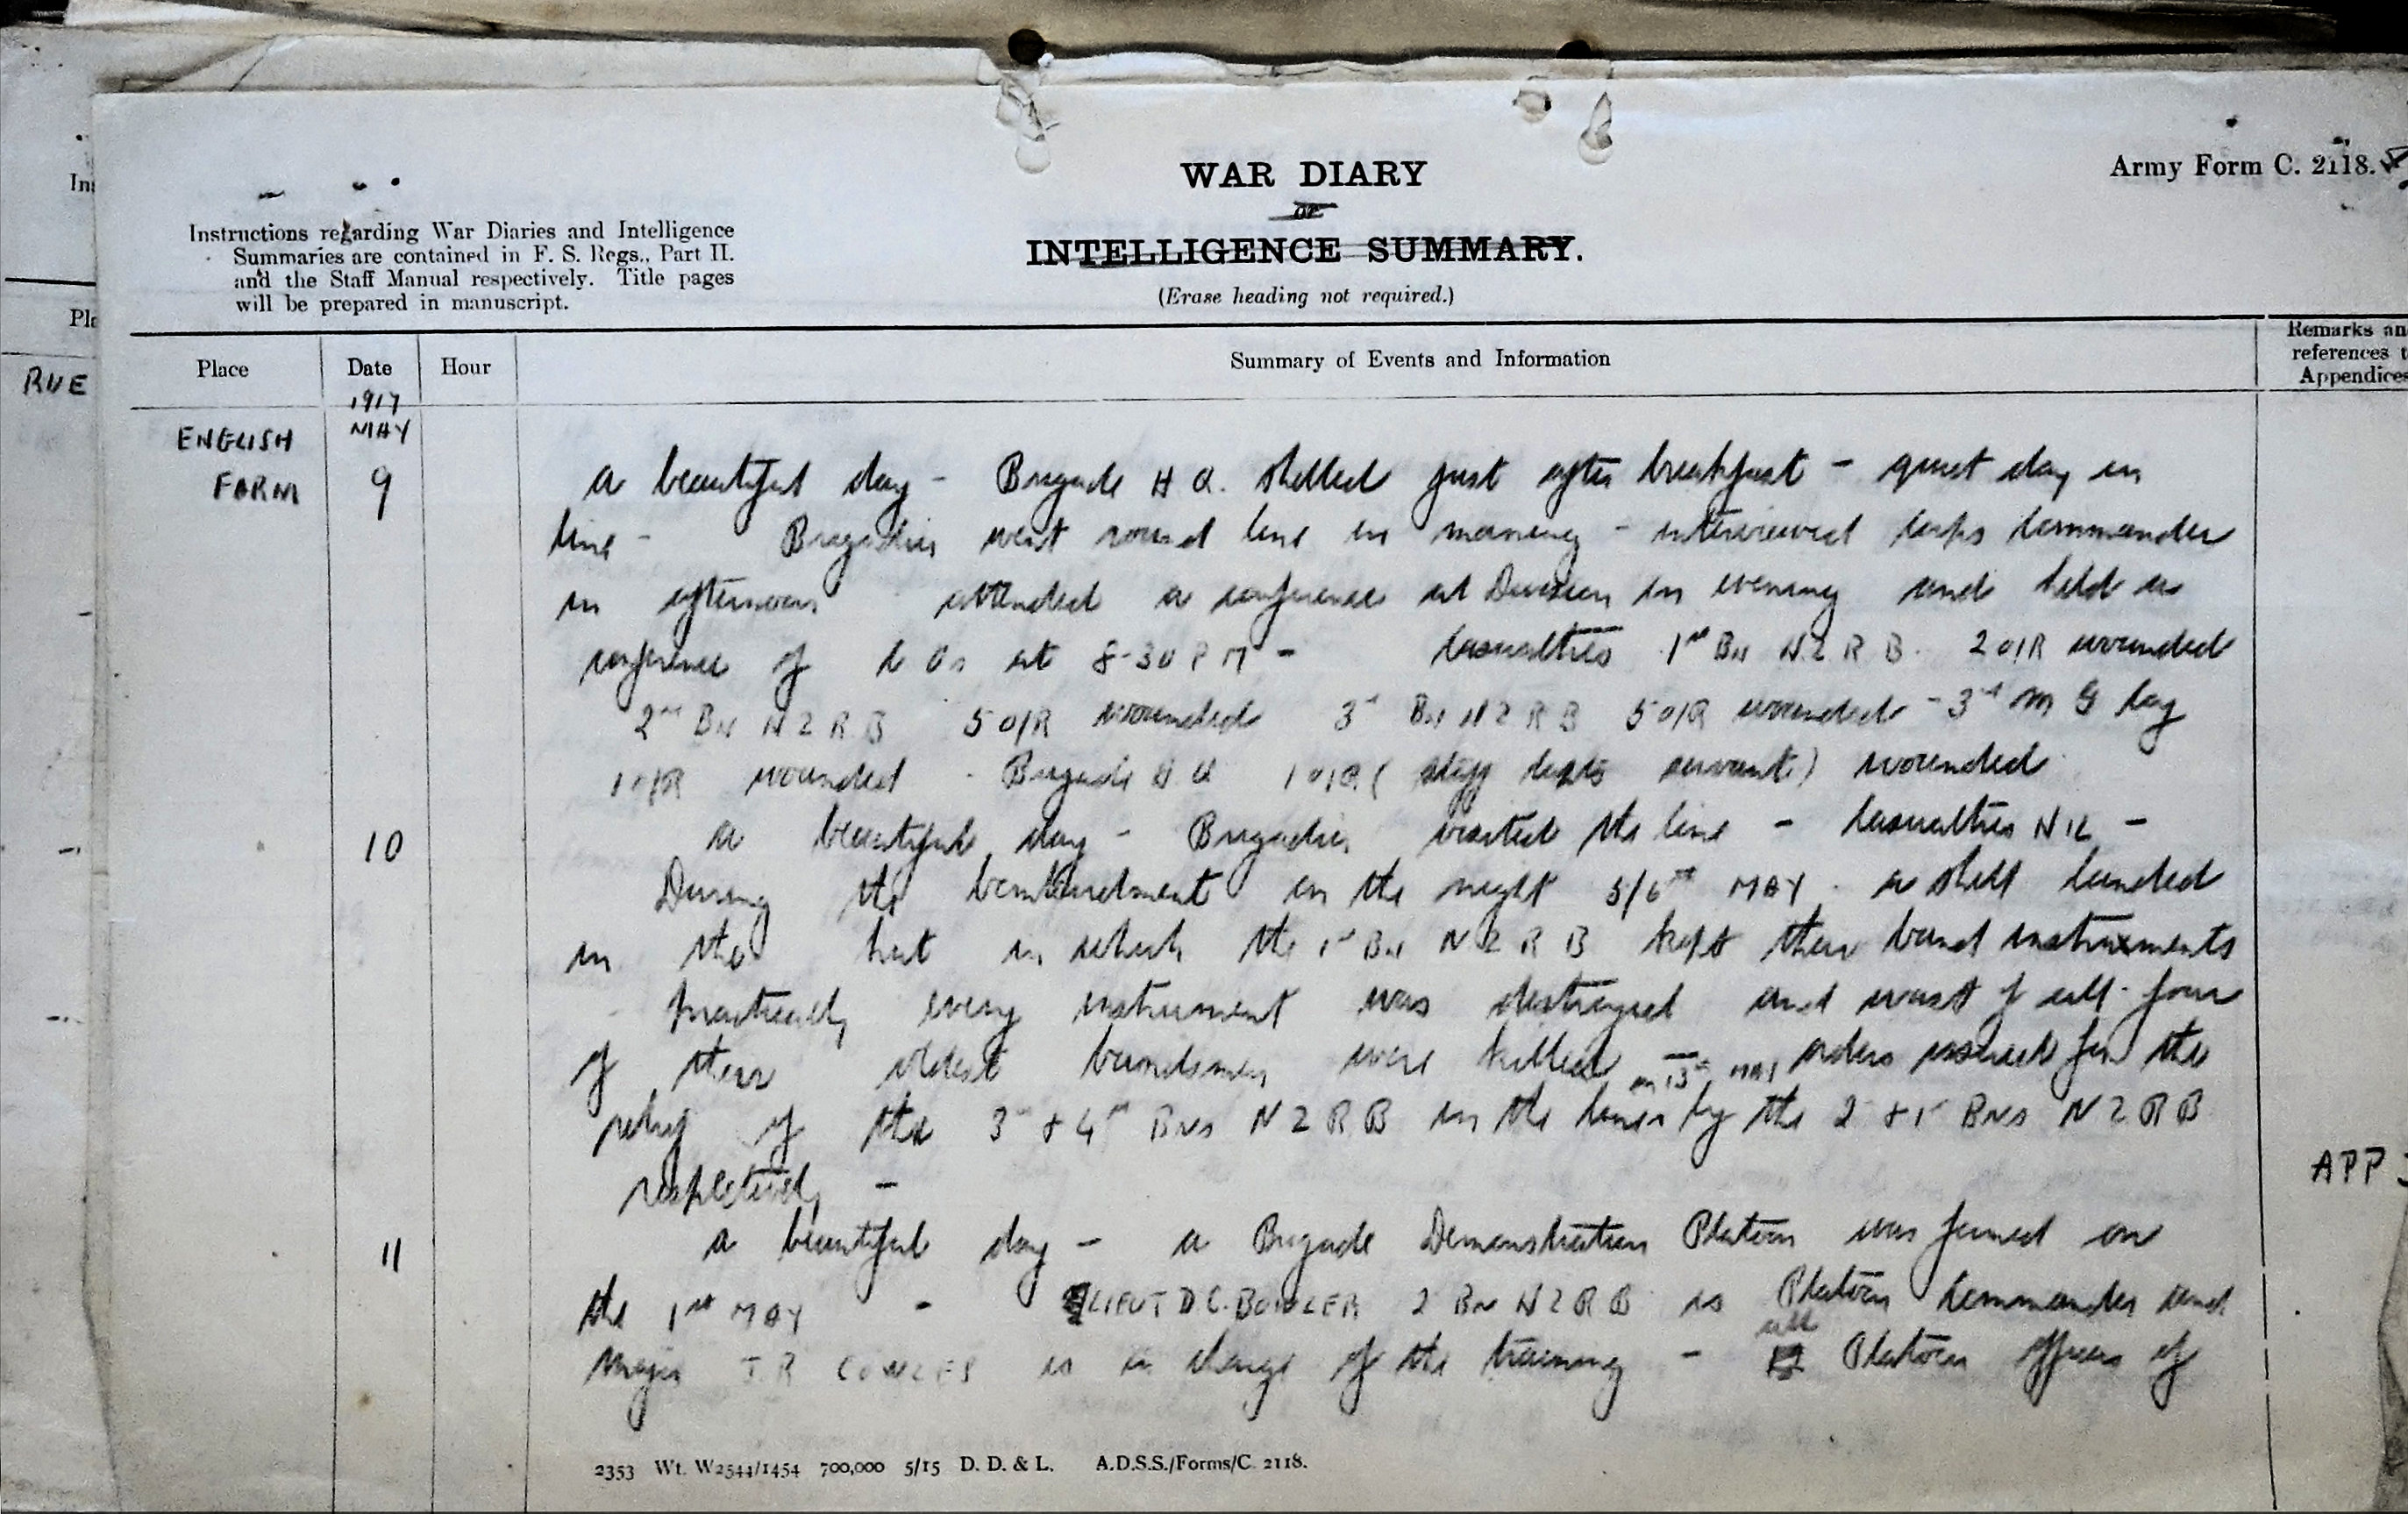 WAR DIARY
or
INTELLIGENCE SUMMARY.
(Erase heading not required.)
Army Form C. 2118.
Instructions regarding War Diaries and Intelligence
Summaries are contained in F. S. Regs., Part II.
and the Staff Manual respectively. Title pages
will be prepared in manuscript.
Place Date Hour Summary of Events and Information
Remarks an
references t
Appendices
RUE
1917
MAY
ENGLISH
FARM
9 a beautiful day - Brigade H Q. shelled just after breakfast - quiet day in
line - Brigadier went round line in morning - interviewed Corps Commander
in afternoon attended a conference at Division in evening and held a
conference of C Os at 8-30 PM - Casualties 1st Bn N Z R B. 2 O/R wounded
2nd Bn N Z R B 5 O/R wounded 3rd Bn N Z R B 5 O/R wounded - 3rd M G Coy
1 O/R wounded - Brigade H Q 1 O/R (Staff Capts servant) wounded
10 a beautiful day - Brigadier visited the line - Casualties NIL -
During the bombardment on the night 5/6th MAY. a shell landed
in the hut in which the 1st Bn N Z R B kept their band instruments
practically every instrument was destroyed and worst of all four
of their oldest bandsmen were killed on 13th MAY orders issued for the
relief of the 3rd & 4th Bns N Z R B in the line by the 2 & 1st Bns N Z R B
respectively -
APP
11 a beautiful day - a Brigade Demonstration Platoon was formed on
the 1st MAY - LIEUT D C. BOWLER 2 Bn N Z R B is Platoon Commander and
Major J R COWLES is in charge of the training - all Platoon officers of
2353 Wt. W2544/1454 700,000 5/15 D. D. & L. A.D.S.S./Forms/C. 2118.